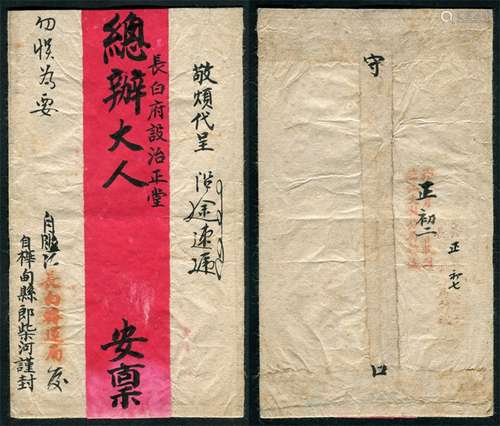 敬煩代呈 沿途速遞
長白府設治正堂
總辦大人 安稟
勿悞為要
長白
自樺甸縣郎柴河謹封
守口
正初二
正 初七